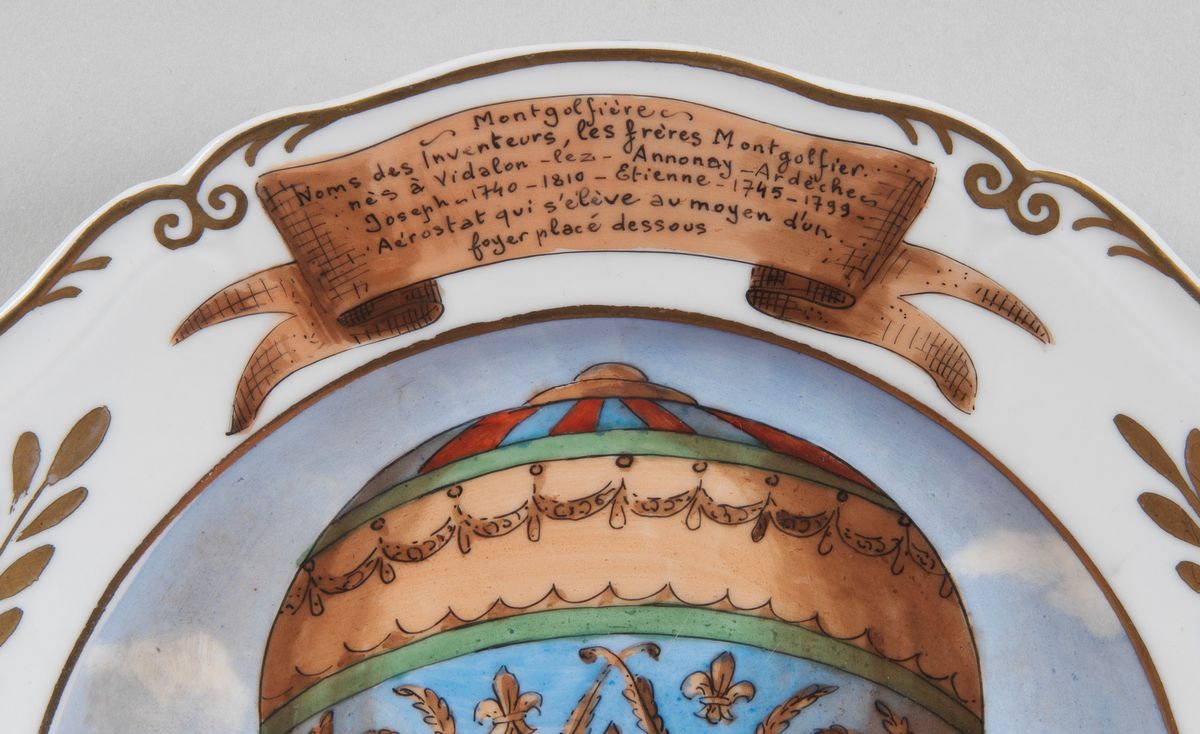 Montgolfière
Noms des Inventeurs, les frères Montgolfier.
nès à Vidalon-lez-Annonay-Ardèche
Joseph-1740-1810-Etienne-1745-1799-
Aérostat qui s'élève au moyen d'un
foyer placé dessous